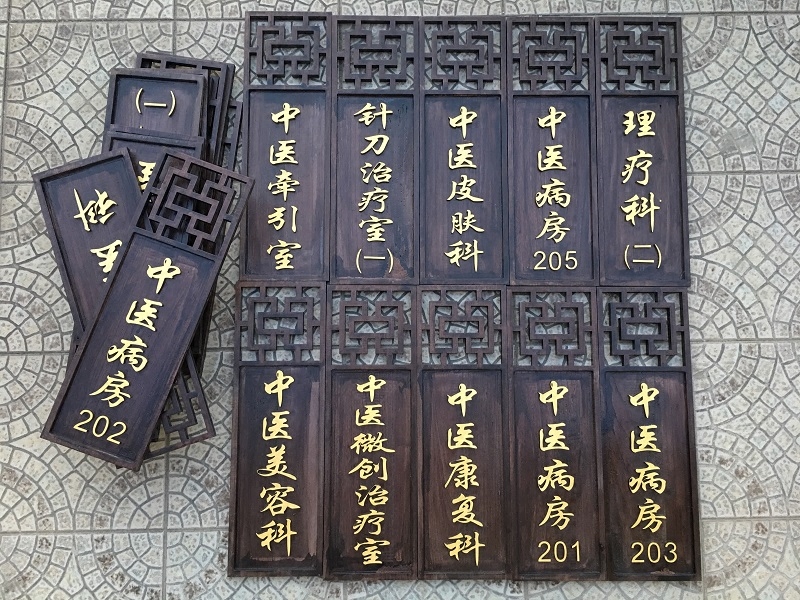 中医牵引室
针刀治疗室
(一)
中医皮肤科
中医病房
205
理疗科
(二)
中医美容科
中医微创治疗室
中医康复科
中医病房
201
中医病房
203
(一)
中医病房
202